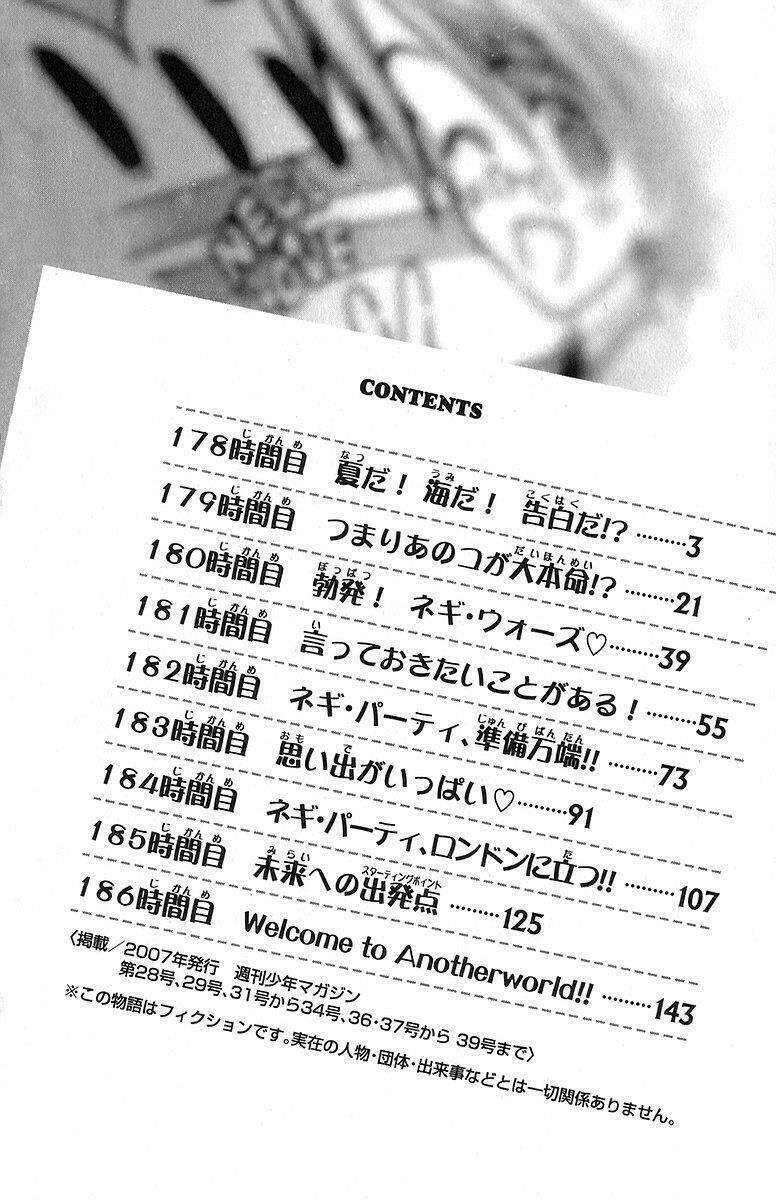 NEGI
LOVE
CONTENTS
178時間目 夏だ！海だ！告白だ!?………3
179時間目 つまりあのコが大本命!?………21
180時間目 勃発！ネギ・ウォーズ♡………39
181時間目 言っておきたいことがある！………55
182時間目 ネギ・パーティ、準備万端!!………73
183時間目 思い出がいっぱい♡………91
184時間目 ネギ・パーティ、ロンドンに立つ!!………107
185時間目 未来への出発点………125
186時間目 Welcome to Anotherworld!!………143
〈掲載／2007年発行 週刊少年マガジン
第28号、29号、31号から34号、36・37号から 39号まで〉
※この物語はフィクションです。実在の人物・団体・出来事などとは一切関係ありません。